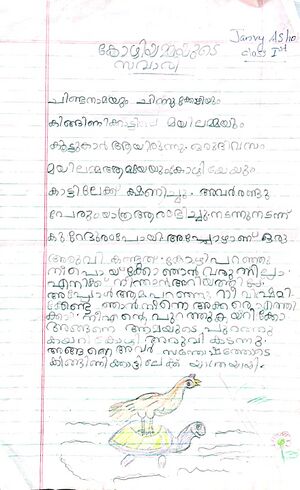 Janvy Asho
class Ist
കോഴിയമ്മയുടെ
സവാരി
ചിണ്ടനാമയും ചിന്നുക്കോഴിയും
കിങ്ങിണിക്കാട്ടിലെ മയിലമ്മയും
കൂട്ടുകാർ ആയിരുന്നു. ഒരു ദിവസം
മയിലമ്മ ആമയെയും കോഴിയേയും
കാട്ടിലേക്ക് ക്ഷണിച്ചു. അവർ രണ്ടു
പേരും യാത്ര ആരംഭിച്ചു. നടന്നു നടന്ന്
കുറേദൂരം പോയി. അപ്പോഴാണ് ഒരു
അരുവി കണ്ടത്. കോഴി പറഞ്ഞു
നീ പൊയ്ക്കോ ഞാൻ വരുന്നില്ല.
എനിക്ക് നീന്താൻ അറിയത്തില്ല.
അപ്പോൾ ആമ പറഞ്ഞു. നീ വിഷമി
ക്കേണ്ട. ഞാൻ നിന്നെ അക്കരെ എത്തി
ക്കാം. നീ എന്റെ പുറത്തു കയറിക്കോ
അങ്ങനെ ആമയുടെ പുറത്തു
കയറി കോഴി അരുവി കടന്നു.
അങ്ങനെ അവർ സന്തോഷത്തോടെ
കിങ്ങിണിക്കാട്ടിലേക്ക് യാത്രയായി.